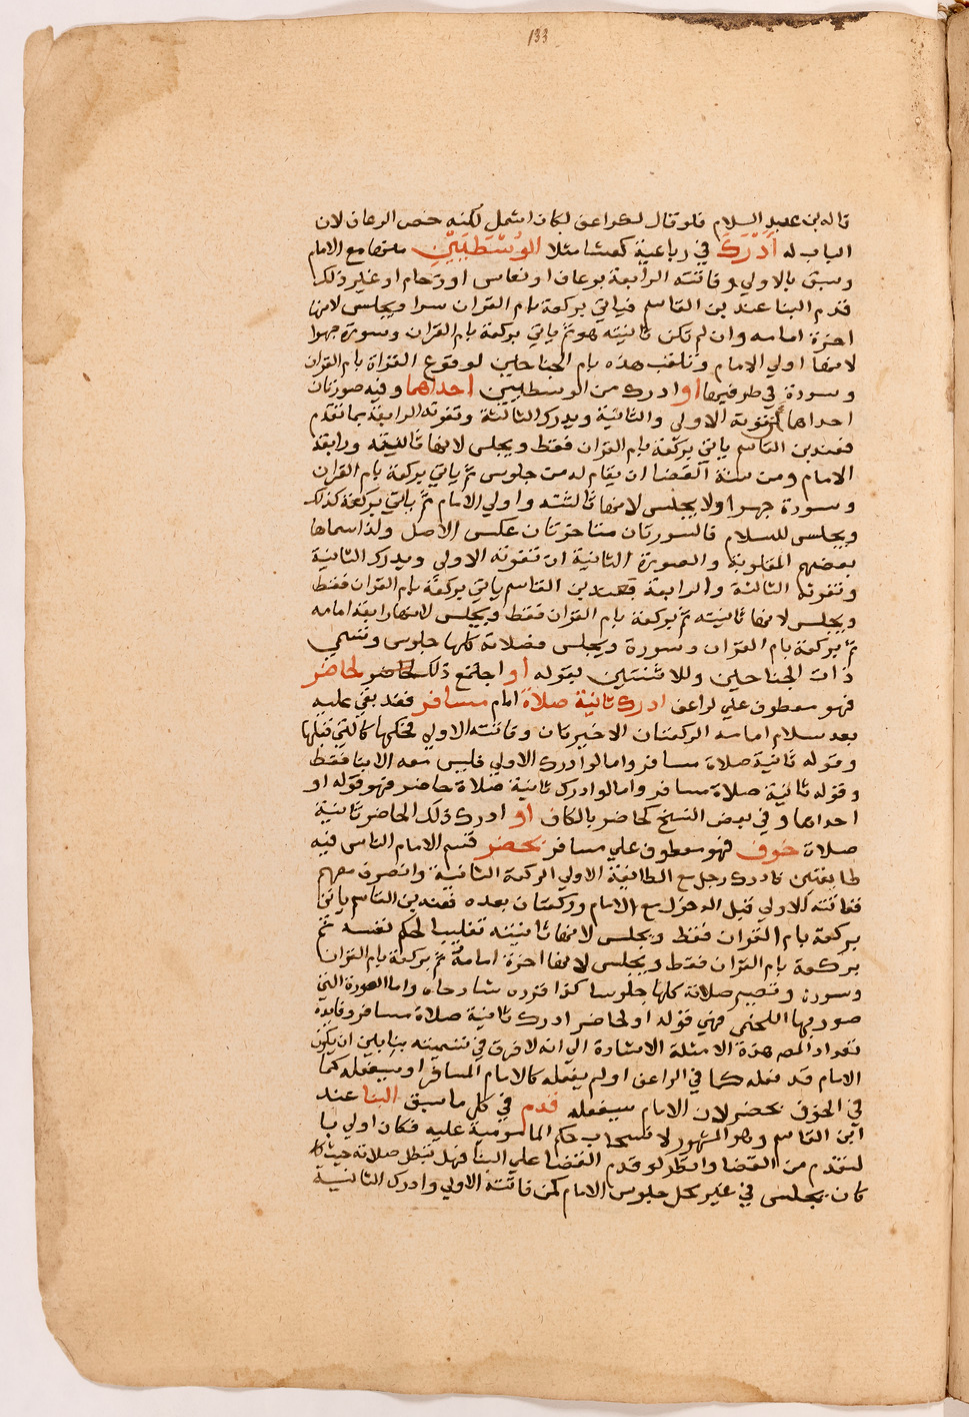 133
قاله بن عبد السلام فلو قال لكراعف لكان اشمل لكنه خص الرعاف لان
الباب له ادرك في رباعية كعشا مثلا الوسطيين معا مع الامام
وسبق بالاولي وفاتته الرابعة برعاف او نعاس او زحام او غير ذلك
قدم البنا عند بن القاسم فياتي بركعة بام القران سرا ويجلس لانها
اخرة امامه وان لم تكن ثانيته هو ثم ياتي بركعة بام القران وسورة جهرا
لانها اولي الامام وتلقب هذه بام الجناحين لوقوع القراة بام القران
وسورة في طرفيها او ادرك من الوسطيين احداهما وفيه صورتان
احداها تفوته الاولي والثانية ويدرك الثالثة وتفوته الرابعة بما تقدم
فعند بن القاسم ياتي بركعة بام القران فقط ويجلس لانها ثانيته ورابعة
الامام ومن سنة القضا ان يقام له من جلوس ثم ياتي بركعة بام القران
وسورة جهرا ولا يجلس لانها ثالثته واولي الامام ثم ياتي بركعة كذلك
ويجلس للسلام فالسورتان متاخرتان عكس الاصل ولذا سماها
بعضهم المقلوبة والصورة الثانية ان تفوته الاولي ويدرك الثانية
وتفوته الثالثة والرابعة فعند بن القاسم ياتي بركعة بام القران فقط
ويجلس لانها ثانيته ثم بركعة بام القران فقط ويجلس لانها رابعة امامه
ثم بركعة بام القران وسورة ويجلس فصلاته كلها جلوس وتسمي
ذات الجناحين وللاثنتين بقوله او اجتمع ذلك لحاضر لحاضر
فهو معطوف علي لراعف ادرك ثانية صلاة امام مسافر فقد بقي عليه
بعد سلام امامه الركعتان الاخيرتان وفاتته الاولي فحكمها كالتي قبلها
وقوله ثانية صلاة مسافر واما لو ادرك الاولي فليس معه الا بنا فقط
وقوله ثانية صلاة مسافر واما لو ادرك ثانية صلاة حاضر فهو قوله او
احداها وفي بعض النسخ كحاضر بالكاف او ادرك ذلك الحاضر ثانية
صلاة خوف فهو معطوف علي مسافر بحضر قسم الامام الناس فيه
طايفتين فادرك رجل مع الطائفة الاولي الركعة الثانية وانصرف معهم
ففاتته الاولي قبل الدخول مع الامام وركعتان بعده فعند بن القاسم ياتي
بركعة بام القران فقط ويجلس لانها ثانيته تغليبا لحكم نفسه ثم
بركعة بام القران فقط ويجلس لانها اخرة امامه ثم بركعة بام القران
وسورة وتصير صلاته كلها جلوسا كذا قرره شارحاه واما الصورة التي
صور بها اللخمي فهي قوله او لحاضر ادرك ثانية صلاة مسافر وفايدة
تعداد المص هذه الامثلة الاشارة الي انه لا فرق في تسميته بنا بين ان يكون
الامام قد فعله كما في الراعف او لم يفعله كالامام المسافر او سيفعله كما
في الخوف بحضر لان الامام سيفعله قدم في كل ما سبق البنا عند
ابن القاسم وهو المشهور لانسحاب حكم المامومية عليه فكان اولي با
لتقدم من القضا وانظر لو قدم القضا علي البنا فهل تبطل صلاته حيث
كان يجلس في غير محل جلوس الامام كمن فاتته الاولي وادرك الثانية